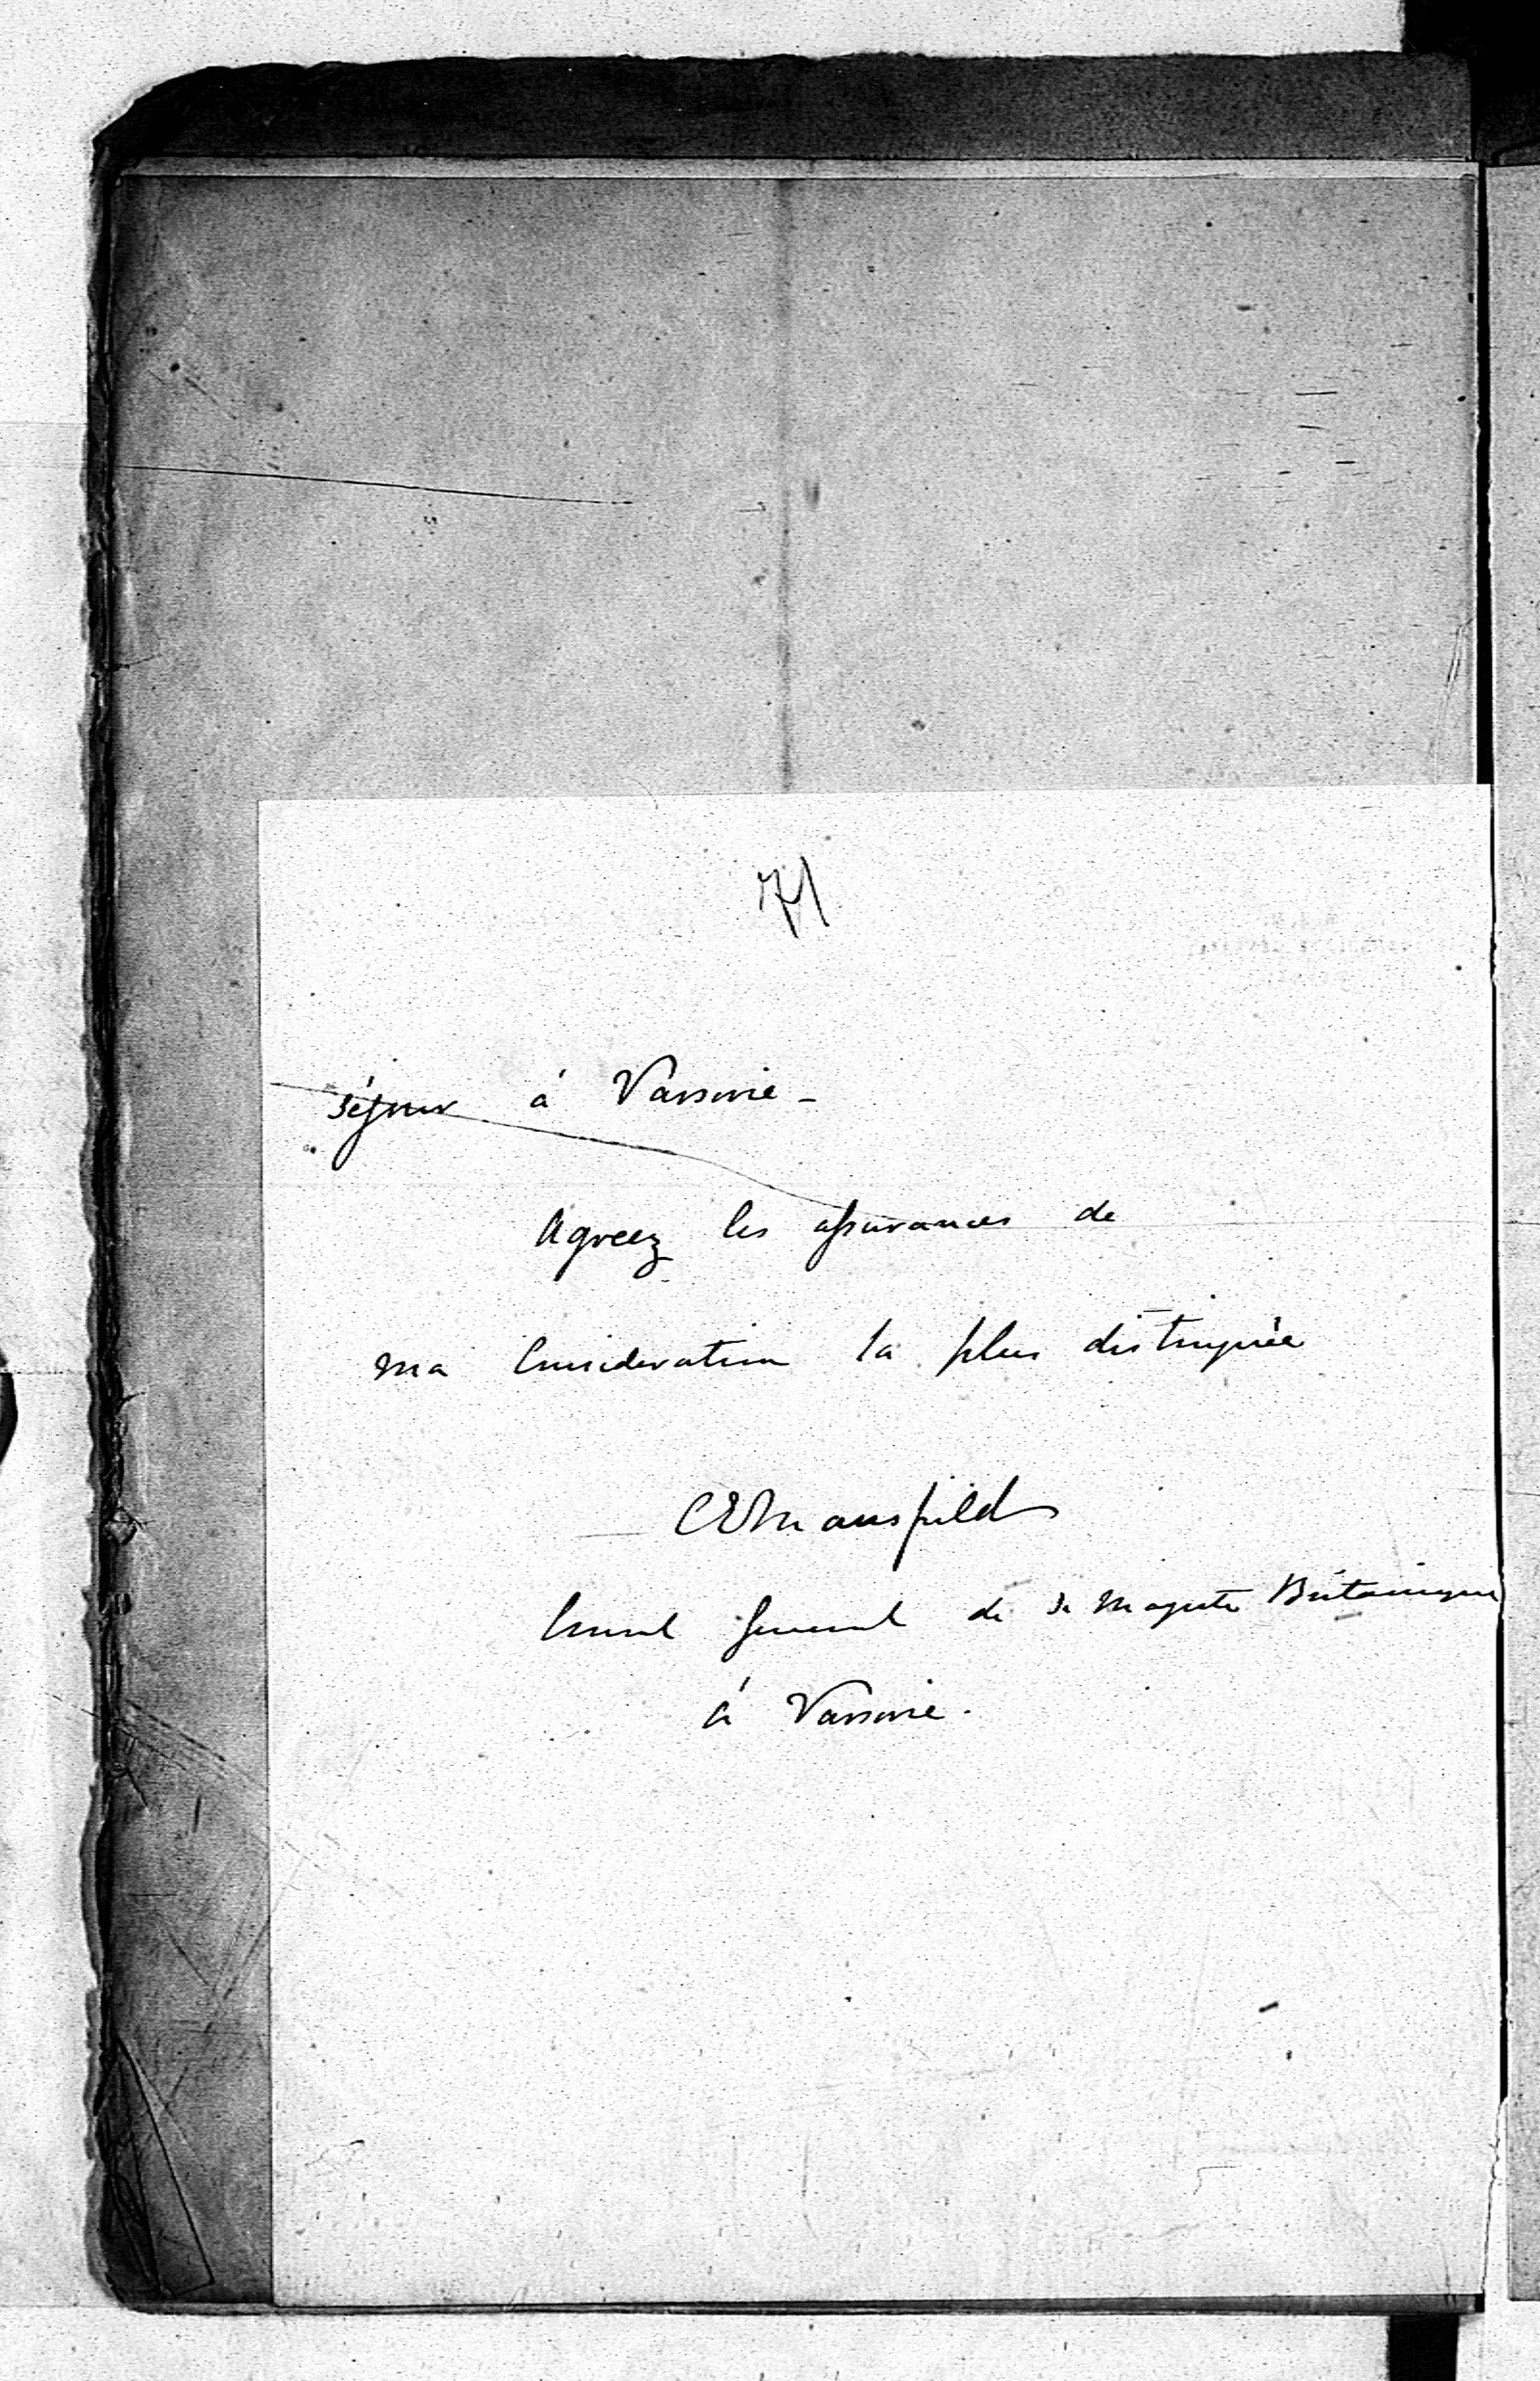 71
séjour à Varsovie -
Agreez les assurances de
ma Consideration la plus distinguée
CEMansfield
Consul General de Sa Majesté Britannique
à Varsovie.